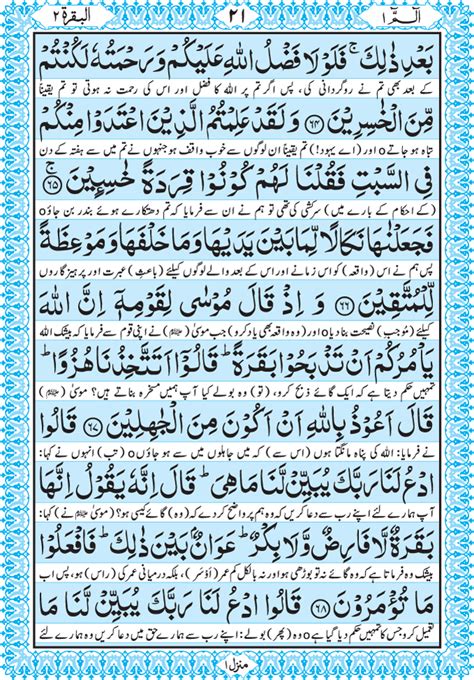 الٓمّٓ ١ ٢١ البقرة ٢
بَعْدِ ذٰلِكَ ۚ فَلَوْلَا فَضْلُ اللّٰهِ عَلَيْكُمْ وَرَحْمَتُهٗ لَكُنْتُمْ
کے بعد بھی تم نے روگردانی کی، پس اگر تم پر اللہ کا فضل اور اس کی رحمت نہ ہوتی تو تم یقیناً
مِّنَ الْخٰسِرِيْنَ ﴿٦٤﴾ وَلَقَدْ عَلِمْتُمُ الَّذِيْنَ اعْتَدَوْا مِنْكُمْ
تباہ ہو جاتے o اور (اے یہود!) تم یقیناً ان لوگوں سے خوب واقف ہو جنہوں نے تم میں سے ہفتہ کے دن
فِى السَّبْتِ فَقُلْنَا لَهُمْ كُوْنُوْا قِرَدَةً خٰسِـِٕيْنَ ﴿٦٥﴾ ۚ
(کے احکام کے بارے میں) سرکشی کی تھی تو ہم نے ان سے فرمایا کہ تم دھتکارے ہوئے بندر بن جاؤ o
فَجَعَلْنٰهَا نَكَالًا لِّمَا بَيْنَ يَدَيْهَا وَمَا خَلْفَهَا وَمَوْعِظَةً
پس ہم نے اس (واقعہ) کو اس زمانے اور اس کے بعد والے لوگوں کیلئے (باعثِ) عبرت اور پرہیزگاروں
لِّلْمُتَّقِيْنَ ﴿٦٦﴾ وَاِذْ قَالَ مُوْسٰى لِقَوْمِهٖٓ اِنَّ اللّٰهَ
کیلئے (موجبِ) نصیحت بنا دیا o اور (وہ واقعہ بھی یاد کرو) جب موسیٰ (ؑ) نے اپنی قوم سے فرمایا کہ بیشک اللہ
يَاْمُرُكُمْ اَنْ تَذْبَحُوْا بَقَرَةً ؕ قَالُوْٓا اَتَتَّخِذُنَا هُزُوًا ؕ
تمہیں حکم دیتا ہے کہ ایک گائے ذبح کرو، (تو) وہ بولے کیا آپ ہمیں مسخرہ بناتے ہیں؟ موسیٰ (ؑ)
قَالَ اَعُوْذُ بِاللّٰهِ اَنْ اَكُوْنَ مِنَ الْجٰهِلِيْنَ ﴿٦٧﴾ قَالُوا
نے فرمایا: اللہ کی پناہ مانگتا ہوں (اس سے) کہ میں جاہلوں میں سے ہو جاؤں o (تب) انہوں نے کہا:
ادْعُ لَنَا رَبَّكَ يُبَيِّنْ لَّنَا مَا هِىَ ؕ قَالَ اِنَّهٗ يَقُوْلُ اِنَّهَا
آپ ہمارے لئے اپنے رب سے دعا کریں کہ وہ ہم پر واضح کر دے کہ (وہ) گائے کیسی ہو؟ (موسیٰ ؑ نے) کہا:
بَقَرَةٌ لَّا فَارِضٌ وَّلَا بِكْرٌ ؕ عَوَانٌۢ بَيْنَ ذٰلِكَ ؕ فَافْعَلُوْا
بیشک وہ فرماتا ہے کہ وہ گائے نہ تو بوڑھی ہو اور نہ بالکل کم عمر (اُوَسَر)، بلکہ درمیانی عمر کی (راس) ہو، پس اب
مَا تُؤْمَرُوْنَ ﴿٦٨﴾ قَالُوا ادْعُ لَنَا رَبَّكَ يُبَيِّنْ لَّنَا مَا
تعمیل کرو جس کا تمہیں حکم دیا گیا ہے o وہ (پھر) بولے: اپنے رب سے ہمارے حق میں دعا کریں وہ ہمارے لئے
منزل ١